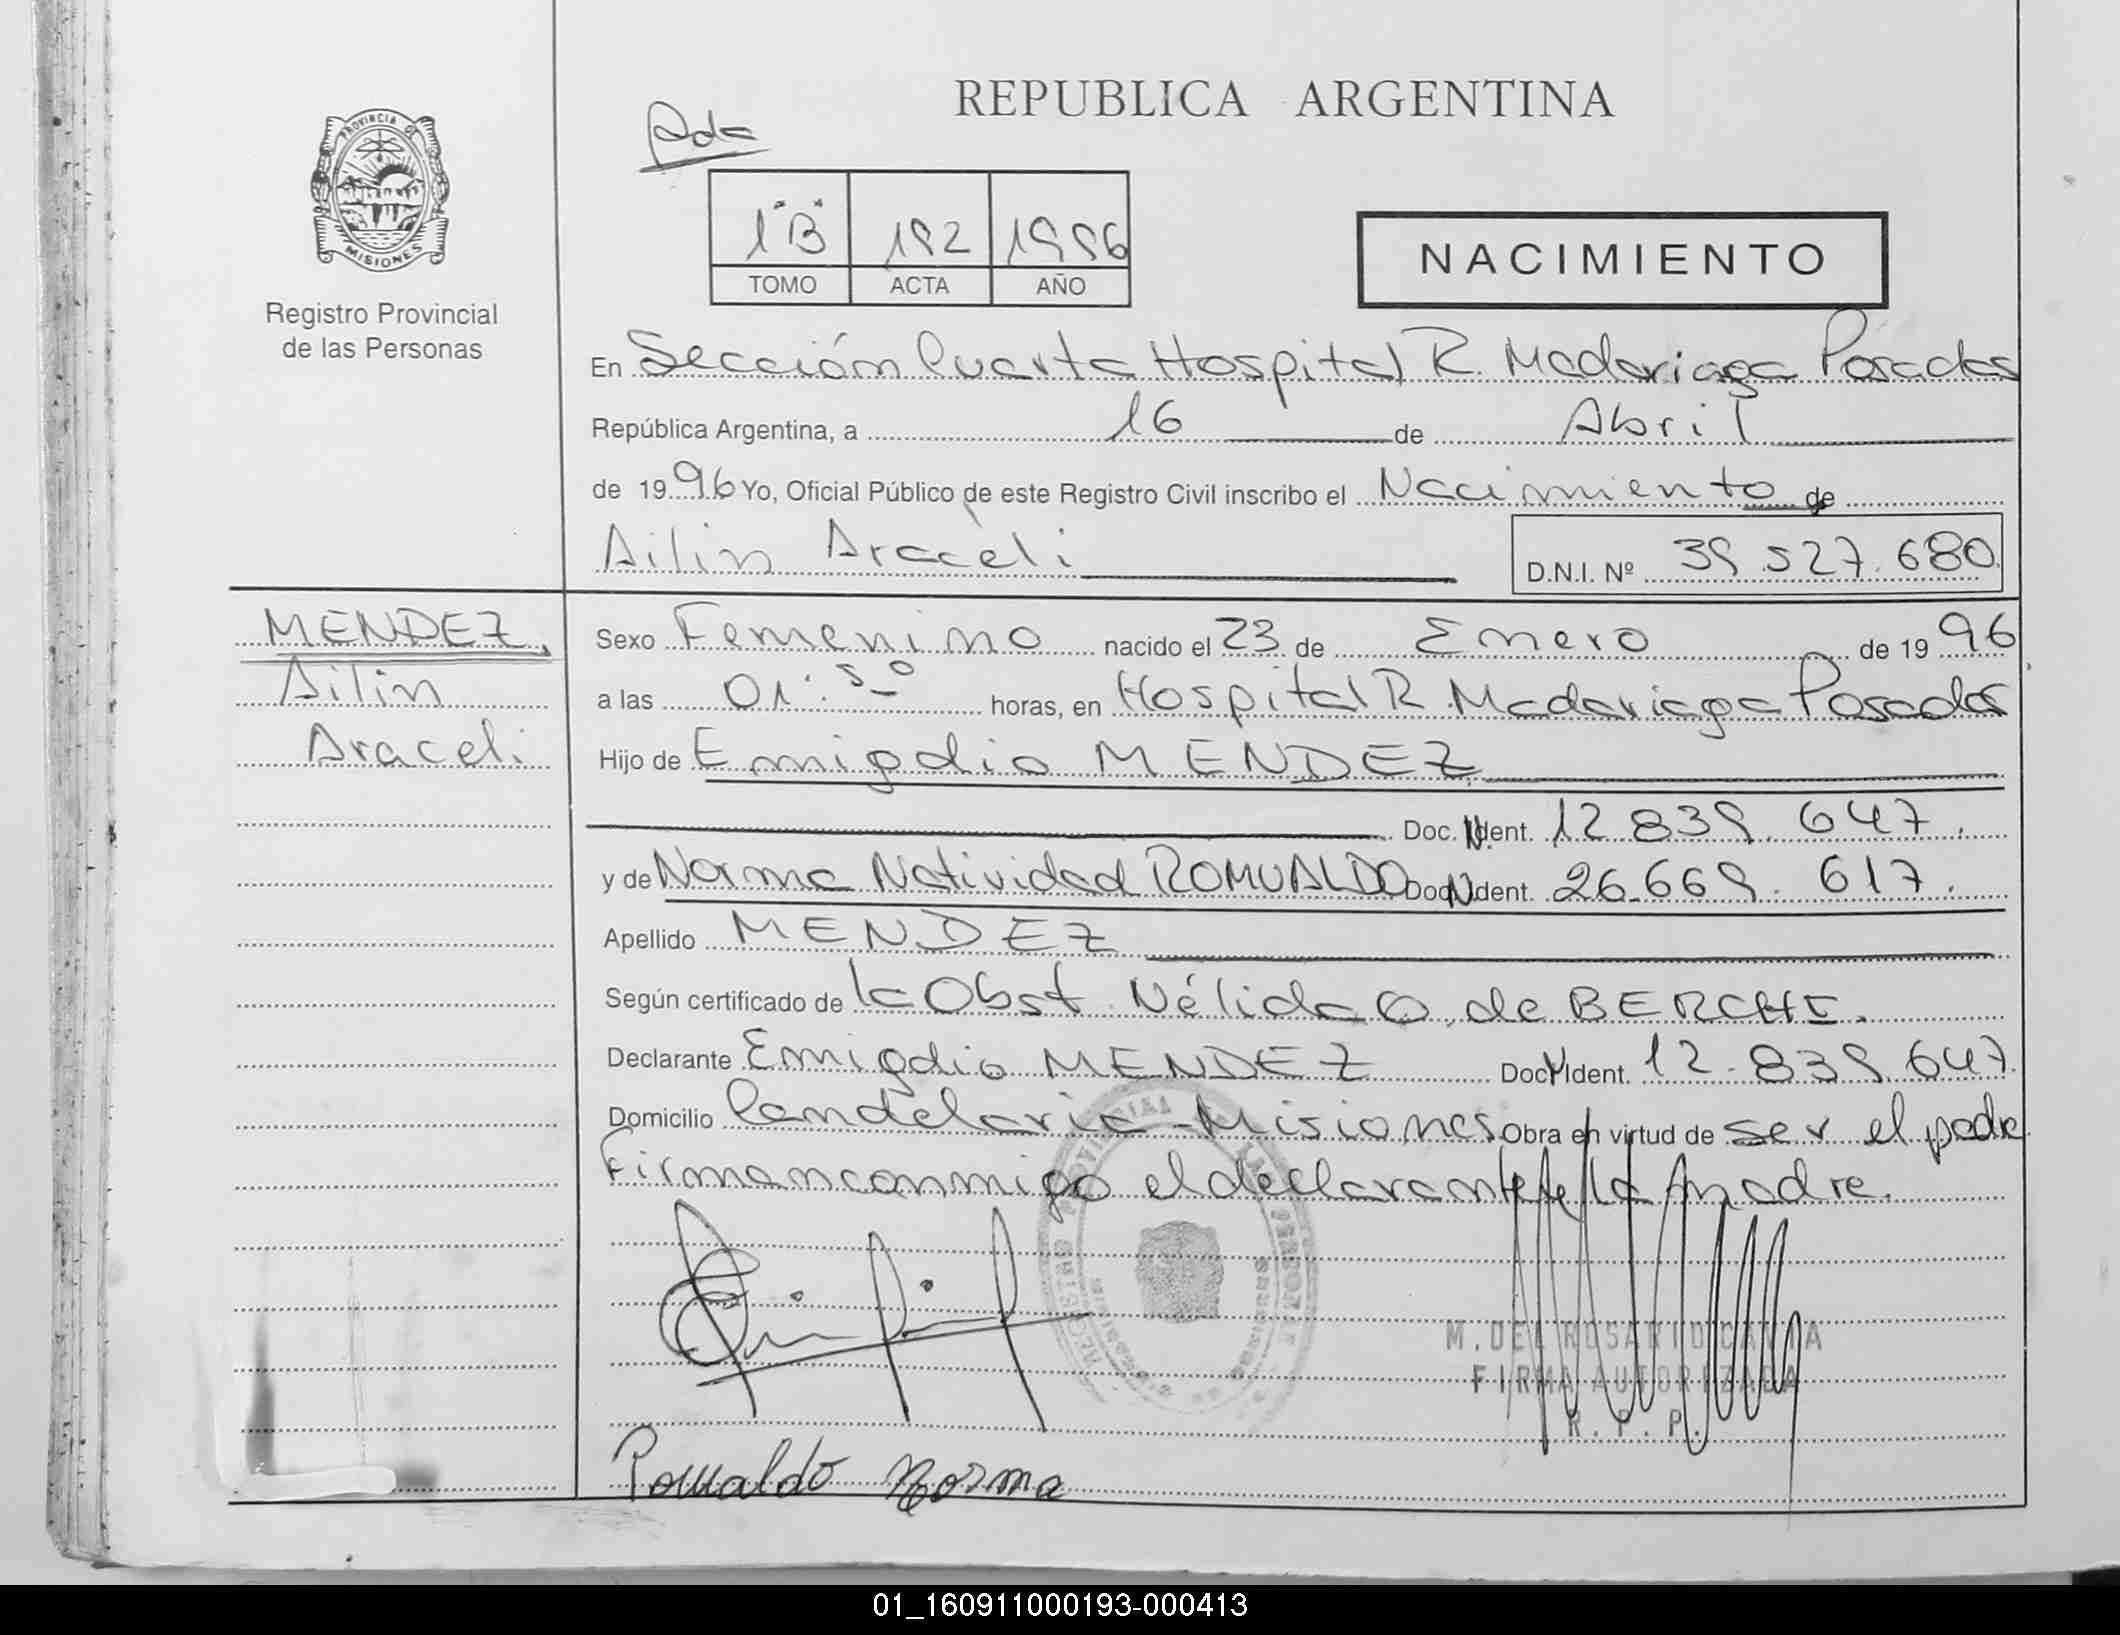 REPUBLICA ARGENTINA
PROVINCIA DE
MISIONES
Registro Provincial
de las Personas
Pda
1 "B" 192 1996
TOMO ACTA AÑO
NACIMIENTO
En Sección Cuarta Hospital R. Madariaga Posadas
República Argentina, a 16 de Abril
de 1996 Yo, Oficial Público de este Registro Civil inscribo el Nacimiento de
Ailin Araceli
D.N.I. Nº 39.527.680
MENDEZ,
Ailin
Araceli
Sexo Femenino nacido el 23 de Enero de 1996
a las 01:50 horas, en Hospital R. Madariaga Posadas
Hijo de Emigdio MENDEZ
Doc. N. Ident. 12.839.647.
y de Norma Natividad ROMUALDO Doc. N. Ident. 26.669.617.
Apellido MENDEZ
Según certificado de la Obst. Nélida O. de BERCHE.
Declarante Emigdio MENDEZ Doc. N Ident. 12.839.647.
Domicilio Candelaria - Misiones Obra en virtud de ser el padre
Firman conmigo el declarante y la madre.
M. DEL ROSARIO
FIRMA AUTORIZADA
R. P. P.
Romualdo Norma
01_160911000193-000413